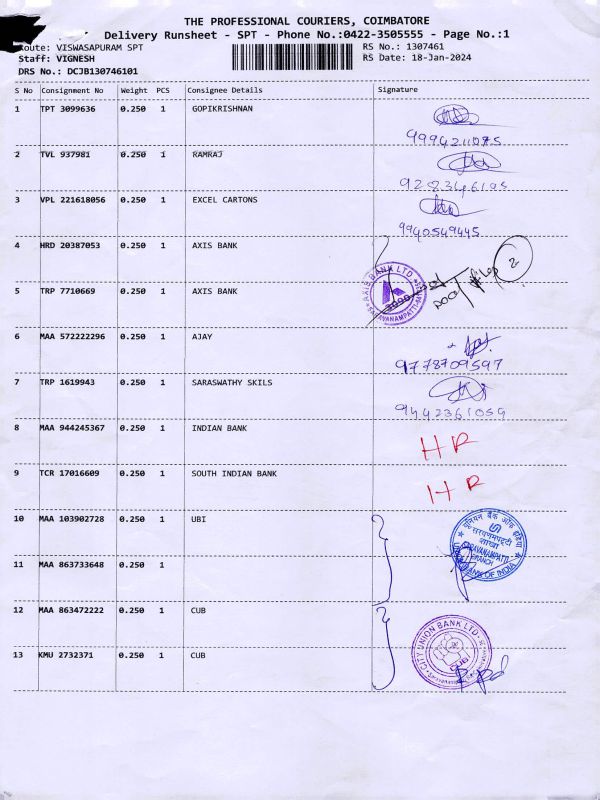 THE PROFESSIONAL COURIERS, COIMBATORE
Delivery Runsheet - SPT - Phone No.:0422-3505555 - Page No.:1
Route: VISWASAPURAM SPT
RS No.: 1307461
Staff: VIGNESH
RS Date: 18-Jan-2024
DRS No.: DCJB130746101
S No Consignment No Weight PCS Consignee Details Signature
1 TPT 3099636 0.250 1 GOPIKRISHNAN
9994211075
2 TVL 937981 0.250 1 RAMRAJ
9283346195
3 VPL 221618056 0.250 1 EXCEL CARTONS
9940549445
4 HRD 20387053 0.250 1 AXIS BANK
2
AXIS BANK LTD
SARAVANAMPATTI
5 TRP 7710669 0.250 1 AXIS BANK
6 MAA 572222296 0.250 1 AJAY
9778709597
7 TRP 1619943 0.250 1 SARASWATHY SKILS
9442361059
8 MAA 944245367 0.250 1 INDIAN BANK
HR
9 TCR 17016609 0.250 1 SOUTH INDIAN BANK
HR
10 MAA 103902728 0.250 1 UBI
यूनियन बैंक ऑफ इंडिया
सरवणमपट्टी
शाखा
SARAVANAMPATTI
BRANCH
UNION BANK OF INDIA
11 MAA 863733648 0.250 1
12 MAA 863472222 0.250 1 CUB
CITY UNION BANK LTD
CUB
13 KMU 2732371 0.250 1 CUB